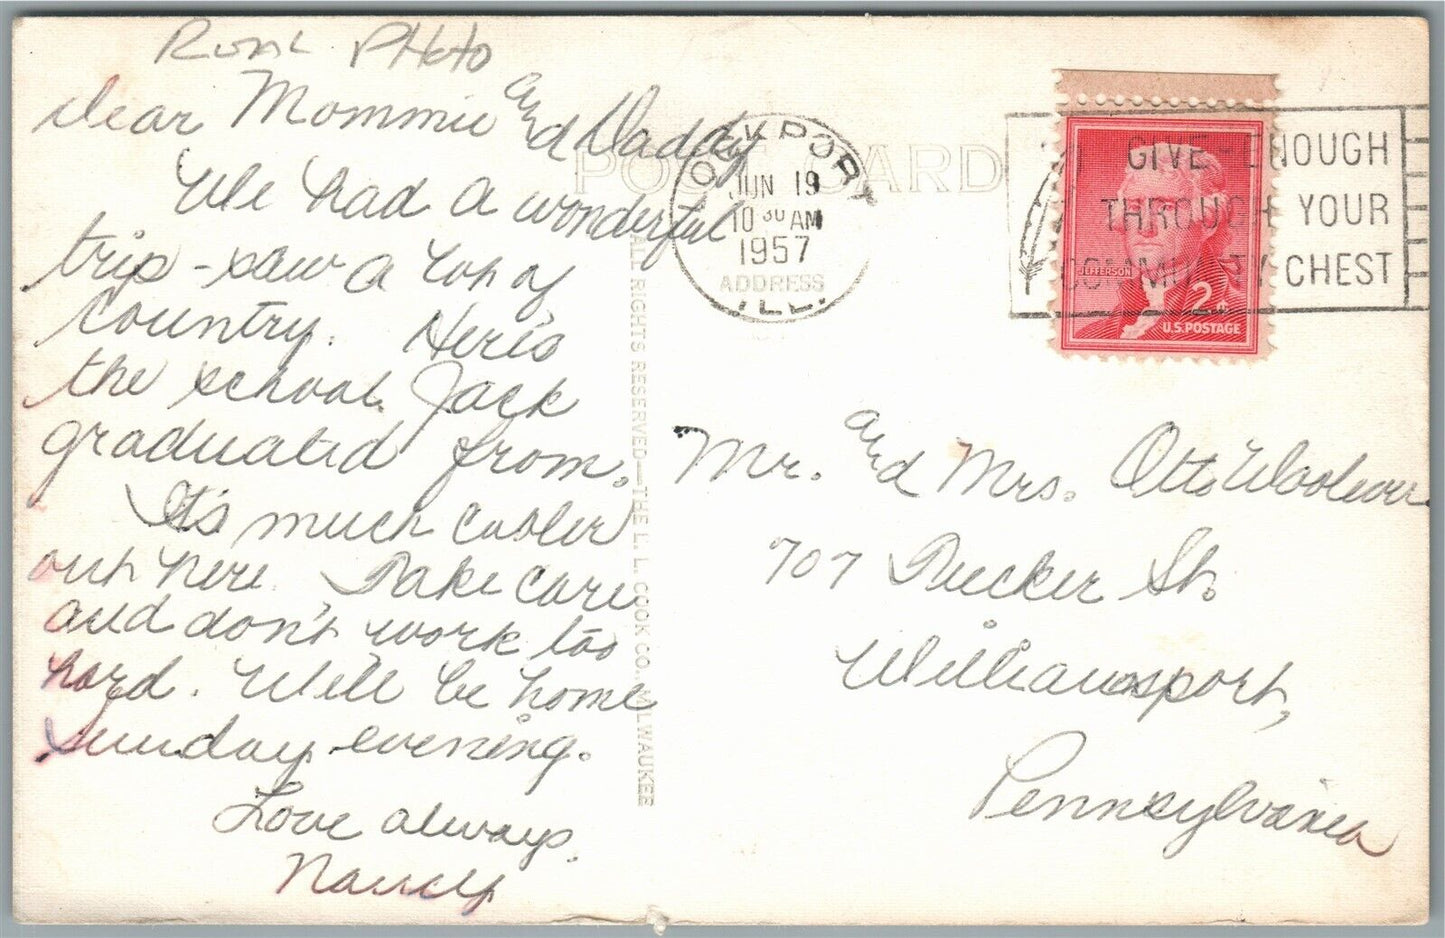 Real Photo
Dear Mommie and Daddy
We had a wonderful
trip - saw a lot of
country. Here's
the school Jack
graduated from.
It's much cooler
out here. Take care
and don't work too
hard. Will be home
Sunday evening.
Love always,
Nancy
POST CARD
ALL RIGHTS RESERVED—THE L. L. COOK CO., MILWAUKEE
LOCKPORT
JUN 19
10 30 AM
1957
ILL.
ADDRESS
GIVE-ENOUGH
THROUGH YOUR
COMMUNITY CHEST
JEFFERSON
2¢
U.S. POSTAGE
Mr. and Mrs. Otto Woolever
707 Rucker St.
Williamsport,
Pennsylvania